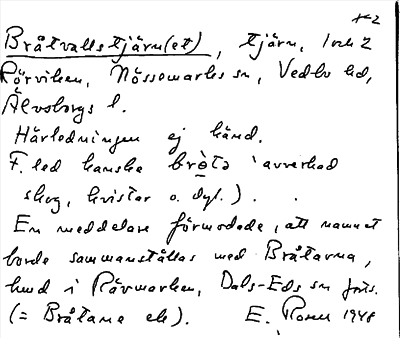 Bråtvallstjärn(et), tjärn, 1 och 2
Rörviken, Nössemarks sn, Vedbo hd,
Älvsborgs l.
Härledningen ej känd.
F. led kanske bròtə 'avverkad
skog, kvistar o. dyl.).
En meddelare förmodade, att namnet
borde sammanställas med Bråtarna,
hmd i Rävmarken, Dals-Eds sn förs.
(= Bråtane ek). E. 1948